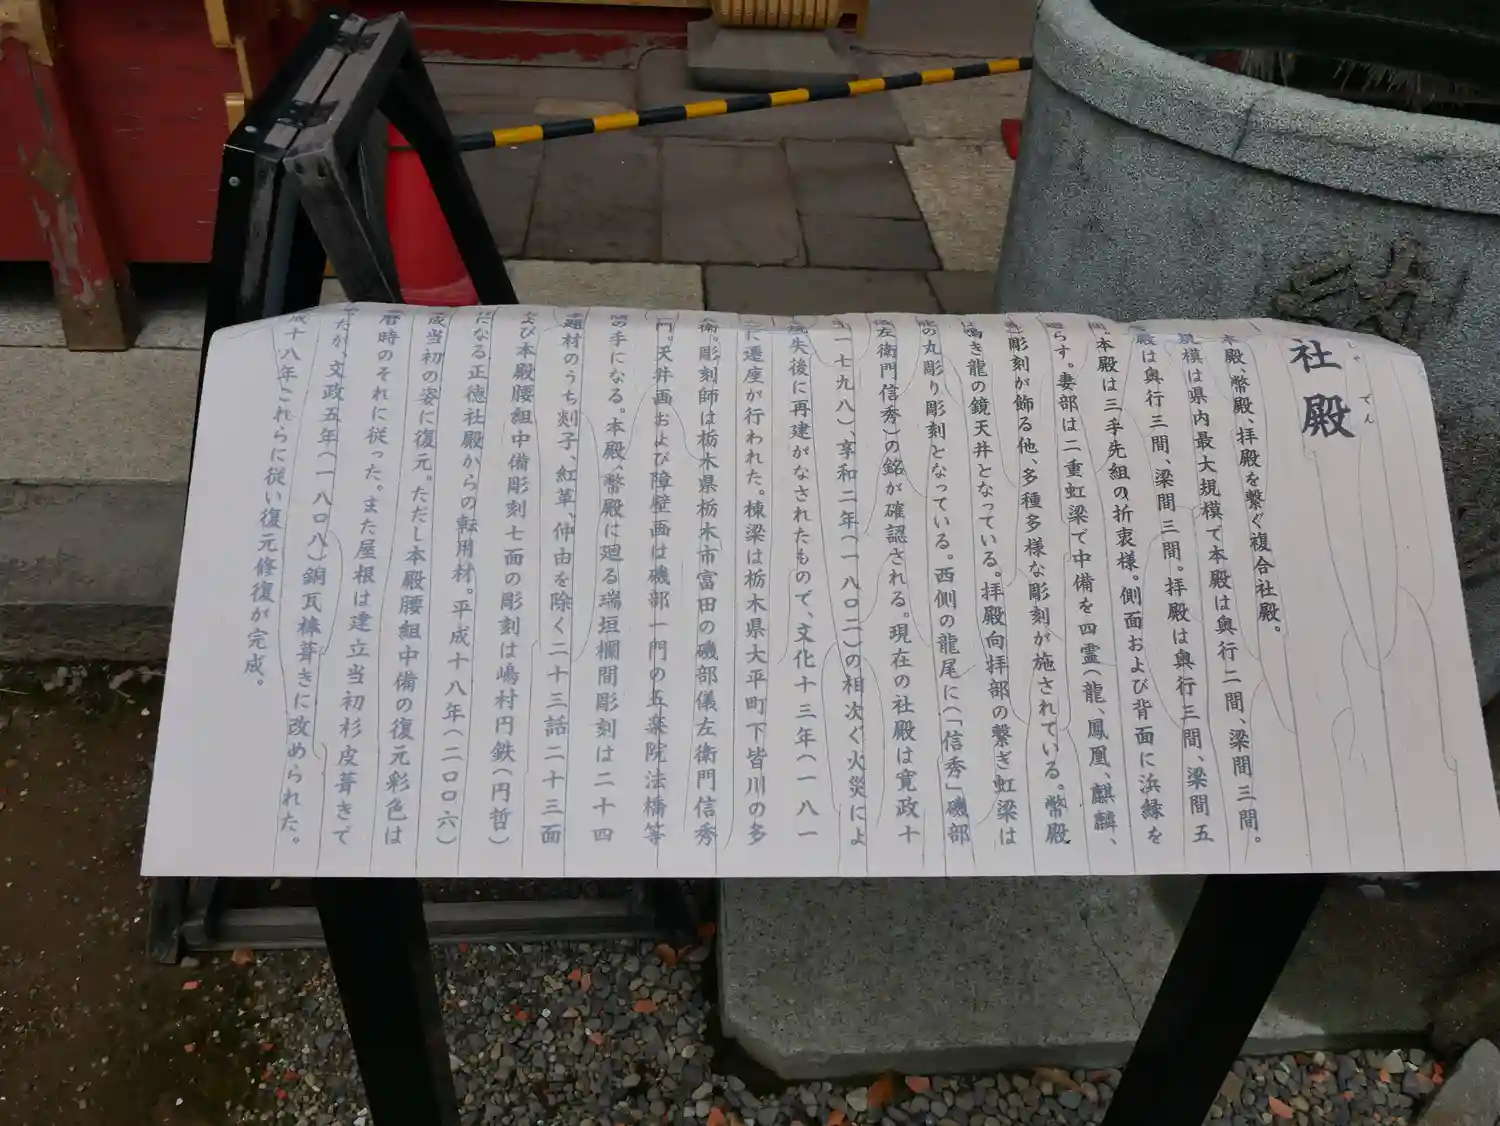 社殿
しゃでん
本殿、幣殿、拝殿を繋ぐ複合社殿。
規模は県内最大規模で本殿は奥行二間、梁間三間。
殿は奥行三間、梁間三間。拝殿は奥行三間、梁間五
間。本殿は三手先組の折衷様。側面および背面に浜縁を
らす。妻部は二重虹梁で中備を四霊(龍、鳳凰、麒麟、
彫刻が飾る他、多種多様な彫刻が施されている。幣殿
鳴き龍の鏡天井となっている。拝殿向拝部の繋ぎ虹梁は
の丸彫り彫刻となっている。西側の龍尾に(「信秀」磯部
左衛門信秀)の銘が確認される。現在の社殿は寛政十
一七九八)、享和二年(一八〇二)の相次ぐ火災によ
焼失後に再建がなされたもので、文化十三年(一八一
に遷座が行われた。棟梁は栃木県大平町下皆川の多
衛。彫刻師は栃木県栃木市富田の磯部儀左衛門信秀
門。天井画および障壁画は磯部一門の五楽院法橋等
の手になる。本殿、幣殿に廻る瑞垣欄間彫刻は二十四
題材のうち剡子、紅革、仲由を除く二十三話二十三面
および本殿腰組中備彫刻七面の彫刻は嶋村円鉄(円哲)
になる正徳社殿からの転用材。平成十八年(二〇〇六)
成当初の姿に復元。ただし本殿腰組中備の復元彩色は
時のそれに従った。また屋根は建立当初杉皮葺きで
たが、文政五年(一八〇八)銅瓦棒葺きに改められた。
成十八年これらに従い復元修復が完成。